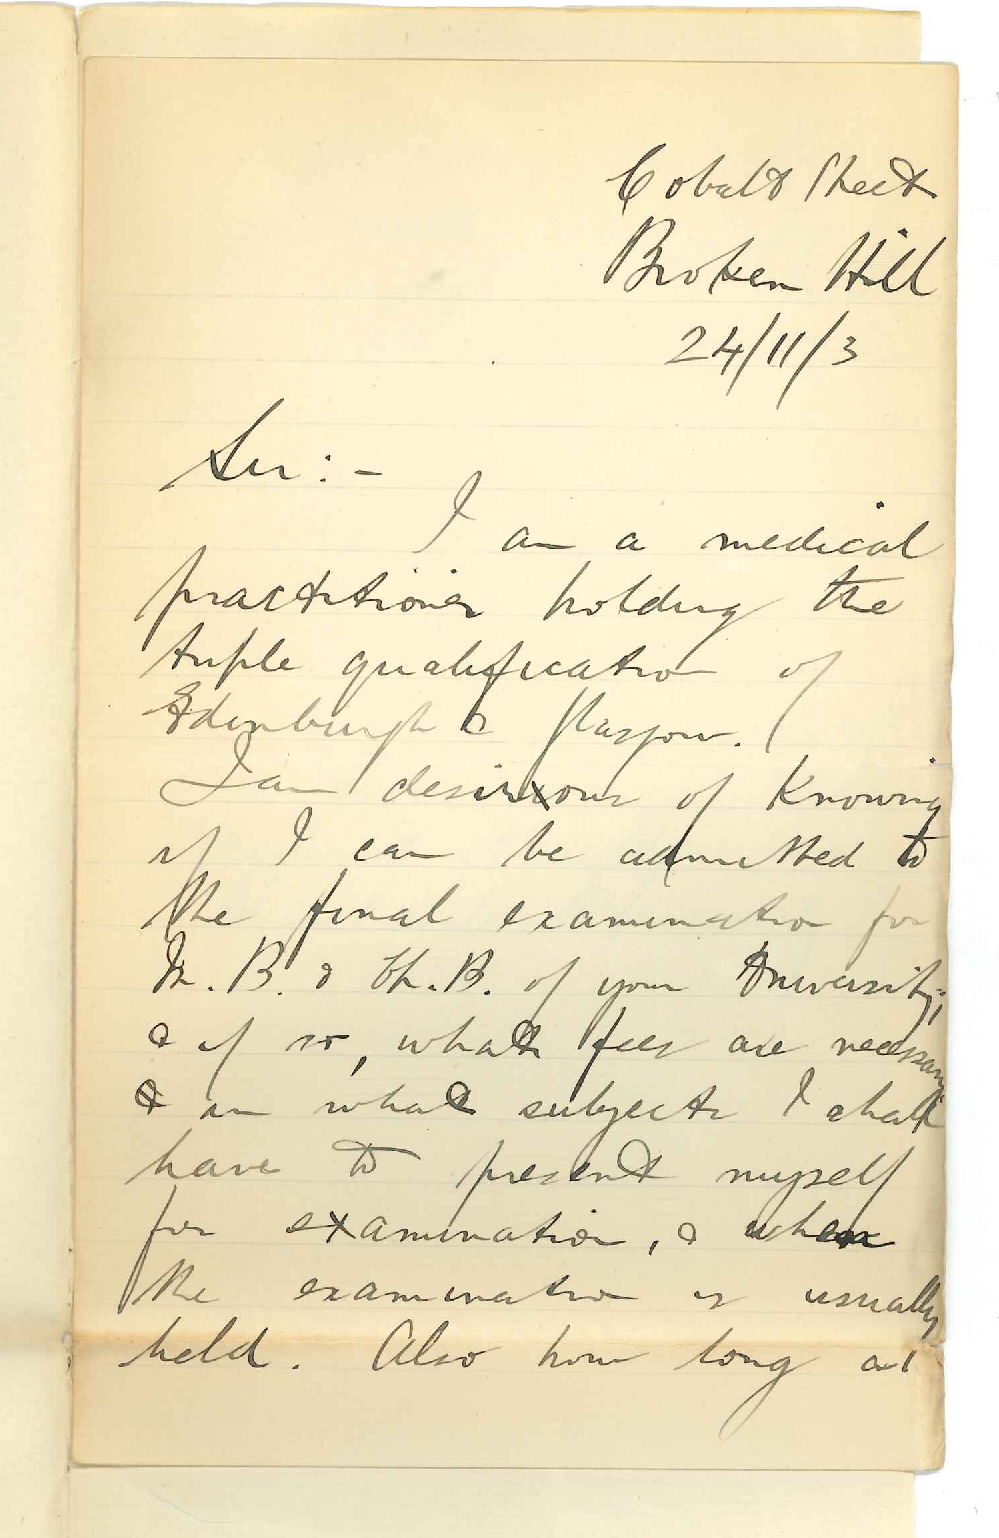 Cobalt Street
Broken Hill
24/11/3
Sir:-
I am a medical
practitioner holding the
triple qualification of
Edinburgh & Glasgow.
I am desirous of knowing
if I can be admitted to
the final examination for
M.B. & Ch.B. of your University,
& if so, what fees are necessary
& in what subjects I shall
have to present myself
for examination, & when
the examination is usually
held. Also how long